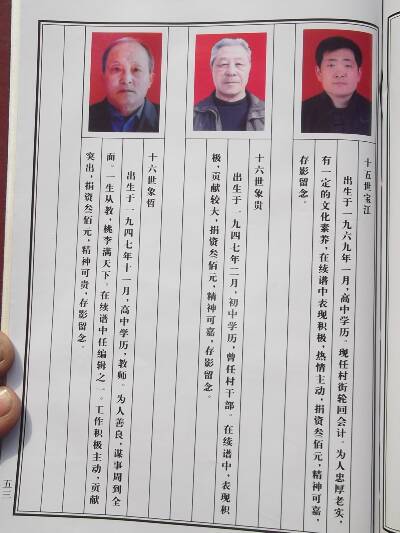 十五世宝江
出生于一九六九年一月,高中学历。现任村街轮回会计。为人忠厚老实,
有一定的文化素养,在续谱中表现积极,热情主动,捐资叁佰元,精神可嘉,
存影留念。
十六世象贵
出生于一九四七年二月,初中学历,曾任村干部。在续谱中,表现积
极,贡献较大,捐资叁佰元,精神可嘉,存影留念。
十六世象哲
出生于一九四七年十一月,高中学历,教师。为人善良,谋事周到全
面。一生从教,桃李满天下。在续谱中任编辑之一。工作积极主动,贡献
突出,捐资叁佰元,精神可贵,存影留念。
五三